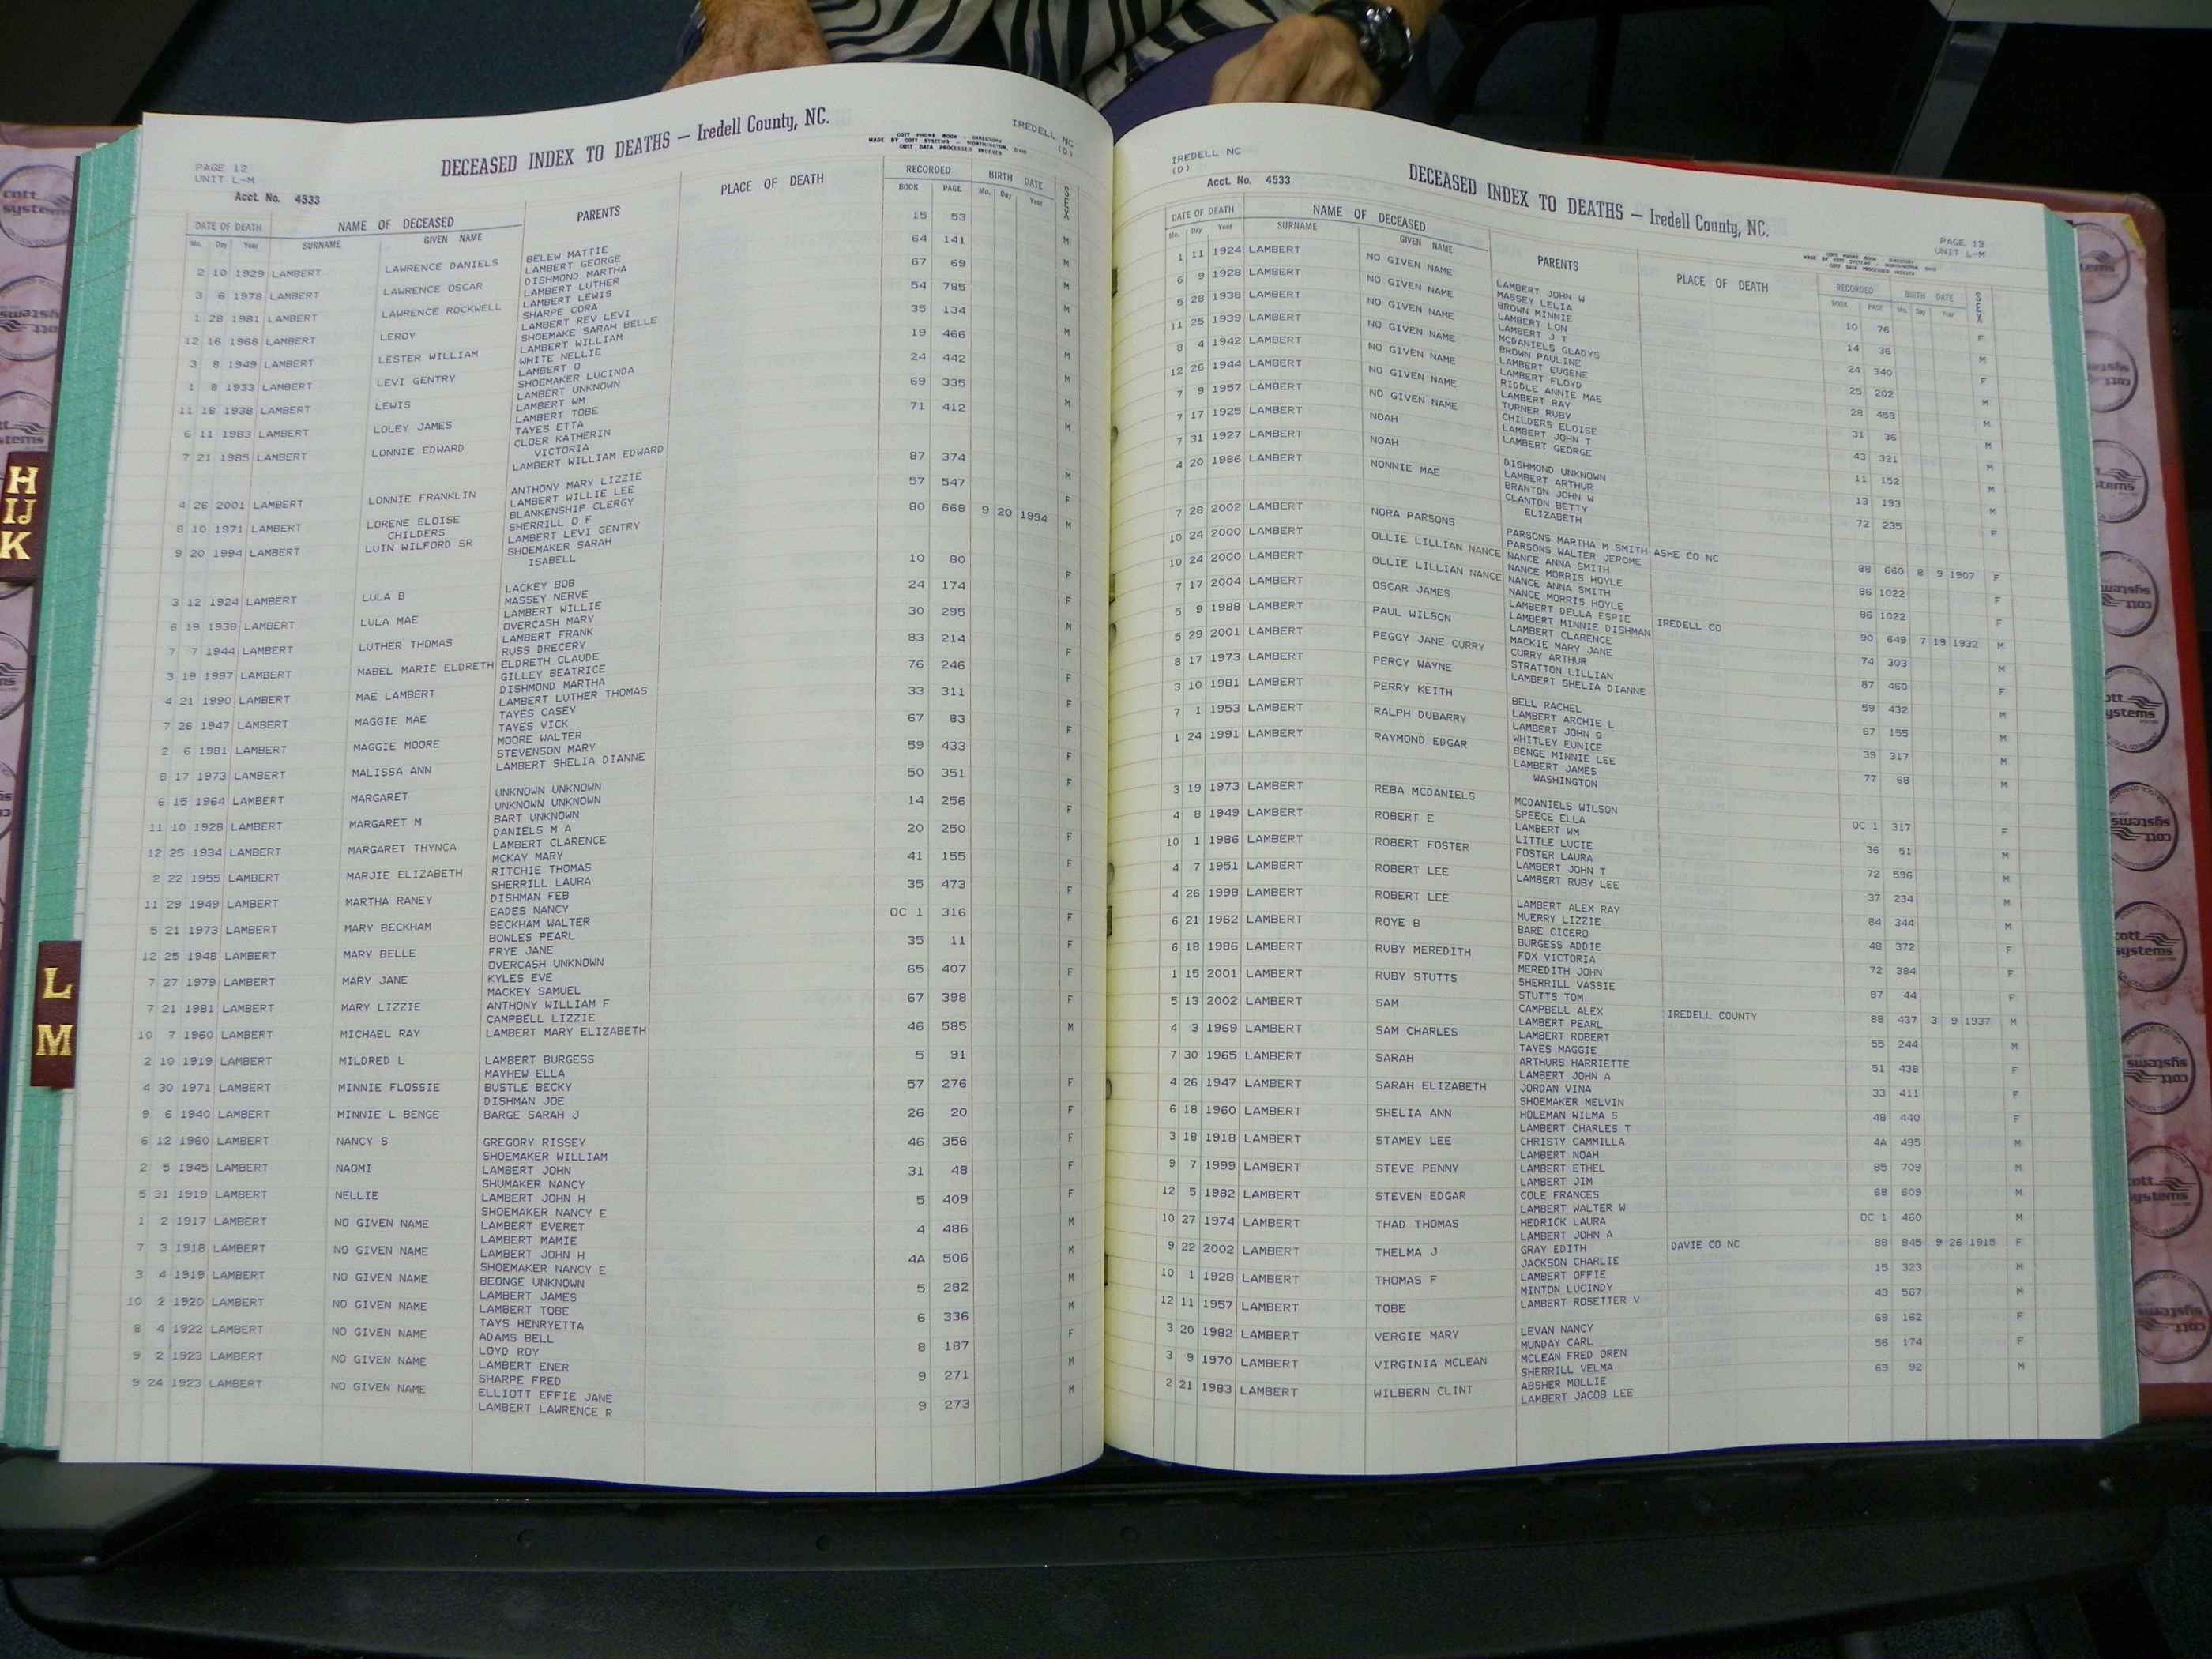 IREDELL NC
(D)
DECEASED INDEX TO DEATHS — Iredell County, NC.
COTT PHONE BOOK - DIRECTORY
MADE BY COTT SYSTEMS - WORTHINGTON, OHIO
COTT DATA PROCESSED INDEXES
PAGE 12
UNIT L-M
Acct. No. 4533
DATE OF DEATH NAME OF DECEASED PARENTS PLACE OF DEATH RECORDED BIRTH DATE SEX
Mo. Day Year SURNAME GIVEN NAME BOOK PAGE Mo. Day Year
2 10 1929 LAMBERT LAWRENCE DANIELS BELEW MATTIE 15 53 M
LAMBERT GEORGE
3 6 1978 LAMBERT LAWRENCE OSCAR DISHMOND MARTHA 64 141 M
LAMBERT LUTHER
1 28 1981 LAMBERT LAWRENCE ROCKWELL LAMBERT LEWIS 67 69 M
SHARPE CORA
12 16 1968 LAMBERT LEROY LAMBERT REV LEVI 54 785 M
SHOEMAKE SARAH BELLE
3 8 1949 LAMBERT LESTER WILLIAM LAMBERT WILLIAM 35 134 M
WHITE NELLIE
1 8 1933 LAMBERT LEVI GENTRY LAMBERT O 19 466 M
SHOEMAKER LUCINDA
11 18 1938 LAMBERT LEWIS LAMBERT UNKNOWN 24 442 M
LAMBERT WM
6 11 1983 LAMBERT LOLEY JAMES LAMBERT TOBE 69 335 M
TAYES ETTA
7 21 1985 LAMBERT LONNIE EDWARD CLOER KATHERIN 71 412 M
VICTORIA
LAMBERT WILLIAM EDWARD
4 26 2001 LAMBERT LONNIE FRANKLIN ANTHONY MARY LIZZIE 87 374 M
LAMBERT WILLIE LEE
8 10 1971 LAMBERT LORENE ELOISE BLANKENSHIP CLERGY 57 547 F
CHILDERS SHERRILL O F
9 20 1994 LAMBERT LUIN WILFORD SR LAMBERT LEVI GENTRY 80 668 9 20 1994 M
SHOEMAKER SARAH
ISABELL
3 12 1924 LAMBERT LULA B LACKEY BOB 10 80 F
MASSEY NERVE
6 19 1938 LAMBERT LULA MAE LAMBERT WILLIE 24 174 F
OVERCASH MARY
7 7 1944 LAMBERT LUTHER THOMAS LAMBERT FRANK 30 295 M
RUSS DRECERY
3 19 1997 LAMBERT MABEL MARIE ELDRETH ELDRETH CLAUDE 83 214 F
GILLEY BEATRICE
4 21 1990 LAMBERT MAE LAMBERT DISHMOND MARTHA 76 246 F
LAMBERT LUTHER THOMAS
7 26 1947 LAMBERT MAGGIE MAE TAYES CASEY 33 311 F
TAYES VICK
2 6 1981 LAMBERT MAGGIE MOORE MOORE WALTER 67 83 F
STEVENSON MARY
8 17 1973 LAMBERT MALISSA ANN LAMBERT SHELIA DIANNE 59 433 F
6 15 1964 LAMBERT MARGARET UNKNOWN UNKNOWN 50 351 F
UNKNOWN UNKNOWN
11 10 1928 LAMBERT MARGARET M BART UNKNOWN 14 256 F
DANIELS M A
12 25 1934 LAMBERT MARGARET THYNCA LAMBERT CLARENCE 20 250 F
MCKAY MARY
2 22 1955 LAMBERT MARJIE ELIZABETH RITCHIE THOMAS 41 155 F
SHERRILL LAURA
11 29 1949 LAMBERT MARTHA RANEY DISHMAN FEB 35 473 F
EADES NANCY
5 21 1973 LAMBERT MARY BECKHAM BECKHAM WALTER OC 1 316 F
BOWLES PEARL
12 25 1948 LAMBERT MARY BELLE FRYE JANE 35 11 F
OVERCASH UNKNOWN
7 27 1979 LAMBERT MARY JANE KYLES EVE 65 407 F
MACKEY SAMUEL
7 21 1981 LAMBERT MARY LIZZIE ANTHONY WILLIAM F 67 398 F
CAMPBELL LIZZIE
10 7 1960 LAMBERT MICHAEL RAY LAMBERT MARY ELIZABETH 46 585 M
2 10 1919 LAMBERT MILDRED L LAMBERT BURGESS 5 91
MAYHEW ELLA
4 30 1971 LAMBERT MINNIE FLOSSIE BUSTLE BECKY 57 276 F
DISHMAN JOE
9 6 1940 LAMBERT MINNIE L BENGE BARGE SARAH J 26 20 F
6 12 1960 LAMBERT NANCY S GREGORY RISSEY 46 356 F
SHOEMAKER WILLIAM
2 5 1945 LAMBERT NAOMI LAMBERT JOHN 31 48 F
SHUMAKER NANCY
5 31 1919 LAMBERT NELLIE LAMBERT JOHN H 5 409 F
SHOEMAKER NANCY E
1 2 1917 LAMBERT NO GIVEN NAME LAMBERT EVERET 4 486 M
LAMBERT MAMIE
7 3 1918 LAMBERT NO GIVEN NAME LAMBERT JOHN H 4A 506 M
SHOEMAKER NANCY E
3 4 1919 LAMBERT NO GIVEN NAME BEONGE UNKNOWN 5 282 M
LAMBERT JAMES
10 2 1920 LAMBERT NO GIVEN NAME LAMBERT TOBE 6 336 M
TAYS HENRYETTA
8 4 1922 LAMBERT NO GIVEN NAME ADAMS BELL 8 187 F
LOYD ROY
9 2 1923 LAMBERT NO GIVEN NAME LAMBERT ENER 9 271 M
SHARPE FRED
9 24 1923 LAMBERT NO GIVEN NAME ELLIOTT EFFIE JANE 9 273 M
LAMBERT LAWRENCE R
IREDELL NC
(D)
Acct. No. 4533
DECEASED INDEX TO DEATHS — Iredell County, NC.
PAGE 13
UNIT L-M
COTT PHONE BOOK - DIRECTORY
MADE BY COTT SYSTEMS - WORTHINGTON OHIO
COTT DATA PROCESSED INDEXES
DATE OF DEATH NAME OF DECEASED PARENTS PLACE OF DEATH RECORDED BIRTH DATE SEX
Mo. Day Year SURNAME GIVEN NAME BOOK PAGE Mo. Day Year
1 11 1924 LAMBERT NO GIVEN NAME LAMBERT JOHN W 10 76 F
MASSEY LELIA
6 9 1928 LAMBERT NO GIVEN NAME BROWN MINNIE 14 36 M
LAMBERT LON
5 28 1938 LAMBERT NO GIVEN NAME LAMBERT J T 24 340 F
MCDANIELS GLADYS
11 25 1939 LAMBERT NO GIVEN NAME BROWN PAULINE 25 202 M
LAMBERT EUGENE
8 4 1942 LAMBERT NO GIVEN NAME LAMBERT FLOYD 28 458 M
RIDDLE ANNIE MAE
12 26 1944 LAMBERT NO GIVEN NAME LAMBERT RAY 31 36 M
TURNER RUBY
7 9 1957 LAMBERT NO GIVEN NAME CHILDERS ELOISE 43 321 M
LAMBERT JOHN T
7 17 1925 LAMBERT NOAH LAMBERT GEORGE 11 152 M
7 31 1927 LAMBERT NOAH DISHMOND UNKNOWN 13 193 M
LAMBERT ARTHUR
4 20 1986 LAMBERT NONNIE MAE BRANTON JOHN W 72 235 F
CLANTON BETTY
ELIZABETH
7 28 2002 LAMBERT NORA PARSONS PARSONS MARTHA M SMITH ASHE CO NC 88 660 8 9 1907 F
PARSONS WALTER JEROME
10 24 2000 LAMBERT OLLIE LILLIAN NANCE NANCE ANNA SMITH 86 1022 F
NANCE MORRIS HOYLE
10 24 2000 LAMBERT OLLIE LILLIAN NANCE NANCE ANNA SMITH 86 1022 F
NANCE MORRIS HOYLE
7 17 2004 LAMBERT OSCAR JAMES LAMBERT DELLA ESPIE IREDELL CO 90 649 7 19 1932 M
LAMBERT MINNIE DISHMAN
5 9 1988 LAMBERT PAUL WILSON LAMBERT CLARENCE 74 303 M
MACKIE MARY JANE
5 29 2001 LAMBERT PEGGY JANE CURRY CURRY ARTHUR 87 460 F
STRATTON LILLIAN
8 17 1973 LAMBERT PERCY WAYNE LAMBERT SHELIA DIANNE 59 432 M
3 10 1981 LAMBERT PERRY KEITH BELL RACHEL 67 155 M
LAMBERT ARCHIE L
7 1 1953 LAMBERT RALPH DUBARRY LAMBERT JOHN Q 39 317 M
WHITLEY EUNICE
1 24 1991 LAMBERT RAYMOND EDGAR BENGE MINNIE LEE 77 68 M
LAMBERT JAMES
WASHINGTON
3 19 1973 LAMBERT REBA MCDANIELS MCDANIELS WILSON OC 1 317 F
SPEECE ELLA
4 8 1949 LAMBERT ROBERT E LAMBERT WM 36 51 M
LITTLE LUCIE
10 1 1986 LAMBERT ROBERT FOSTER FOSTER LAURA 72 596 M
LAMBERT JOHN T
4 7 1951 LAMBERT ROBERT LEE LAMBERT RUBY LEE 37 234 M
4 26 1998 LAMBERT ROBERT LEE LAMBERT ALEX RAY 84 344 M
MUERRY LIZZIE
6 21 1962 LAMBERT ROYE B BARE CICERO 48 372 F
BURGESS ADDIE
6 18 1986 LAMBERT RUBY MEREDITH FOX VICTORIA 72 384 F
MEREDITH JOHN
1 15 2001 LAMBERT RUBY STUTTS SHERRILL VASSIE 87 44 F
STUTTS TOM
5 13 2002 LAMBERT SAM CAMPBELL ALEX IREDELL COUNTY 88 437 3 9 1937 M
LAMBERT PEARL
4 3 1969 LAMBERT SAM CHARLES LAMBERT ROBERT 55 244 M
TAYES MAGGIE
7 30 1965 LAMBERT SARAH ARTHURS HARRIETTE 51 438 F
LAMBERT JOHN A
4 26 1947 LAMBERT SARAH ELIZABETH JORDAN VINA 33 411 F
SHOEMAKER MELVIN
6 18 1960 LAMBERT SHELIA ANN HOLEMAN WILMA S 48 440 F
LAMBERT CHARLES T
3 18 1918 LAMBERT STAMEY LEE CHRISTY CAMMILLA 4A 495 M
LAMBERT NOAH
9 7 1999 LAMBERT STEVE PENNY LAMBERT ETHEL 85 709 M
LAMBERT JIM
12 5 1982 LAMBERT STEVEN EDGAR COLE FRANCES 68 609 M
LAMBERT WALTER W
10 27 1974 LAMBERT THAD THOMAS HEDRICK LAURA OC 1 460 M
LAMBERT JOHN A
9 22 2002 LAMBERT THELMA J GRAY EDITH DAVIE CO NC 88 845 9 26 1915 F
JACKSON CHARLIE
10 1 1928 LAMBERT THOMAS F LAMBERT OFFIE 15 323 M
MINTON LUCINDY
12 11 1957 LAMBERT TOBE LAMBERT ROSETTER V 43 567 M
3 20 1982 LAMBERT VERGIE MARY LEVAN NANCY 68 162 F
MUNDAY CARL
3 9 1970 LAMBERT VIRGINIA MCLEAN MCLEAN FRED OREN 56 174 F
SHERRILL VELMA
2 21 1983 LAMBERT WILBERN CLINT ABSHER MOLLIE 69 92 M
LAMBERT JACOB LEE
H
IJ
K
L
M
cott
systems